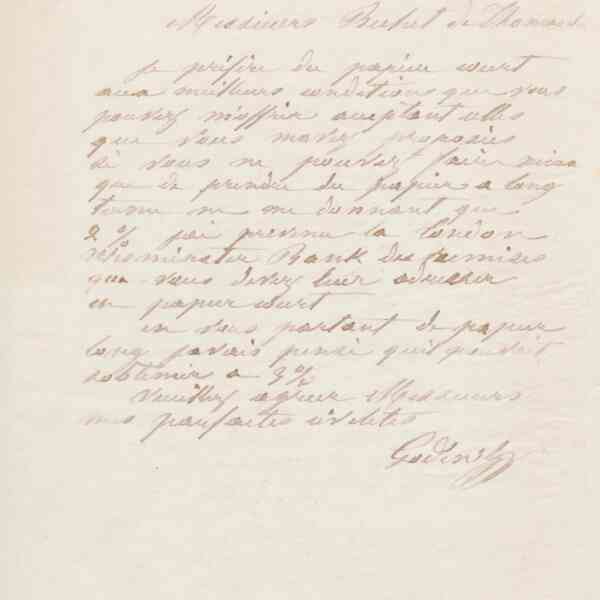 Messieurs Buffet de Thomas
Je préfère du papier court
aux meilleurs conditions que vous
pouvez m'offrir acceptant celles
que vous mavez proposées
si vous ne pouvez faire mieux
que de prendre du papier a long
terme ne me donnant que
2% jai prevenu la London
Wesminster Bank des remises
que vous devez leur adresser
en papier court
en vous parlant de papier
long javais pensé quil pouvait
sobtenir a 3%
Veuillez agreer Messieurs
mes parfaites civilités